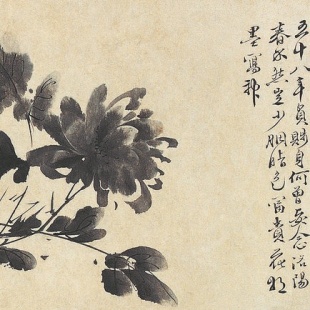 五十八年貧賤身何曾妄念洛陽
春不然豈少胭脂色富貴花將
墨寫神